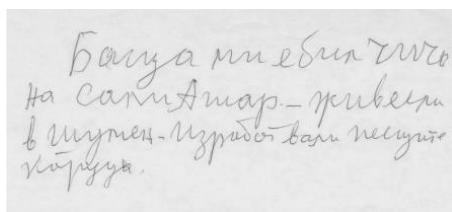 Баща ми е бил чичо
на Сали Яшар. – живеели
в Шумен – Изработвали пещите